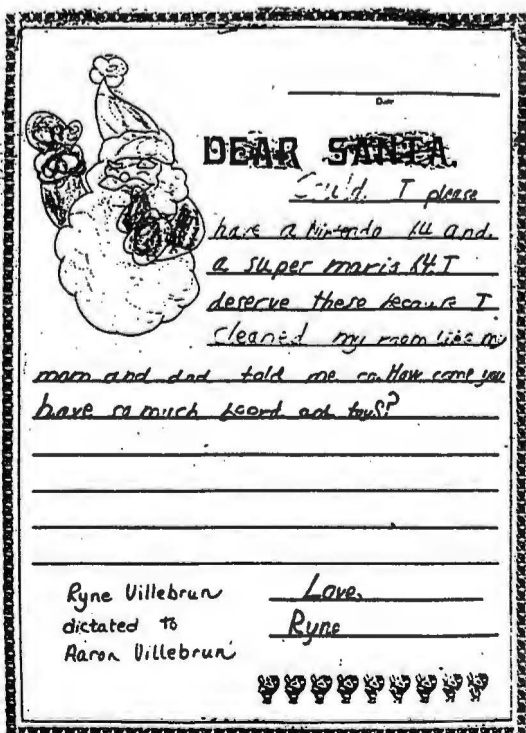 Date
DEAR SANTA,
Could I please
have a Nintendo 64 and
a super mario 64. I
deserve these because I
cleaned my room like my
mom and dad told me to. How come you
have so much beard and toys?
Ryne Villebrun
dictated to
Aaron Villebrun
Love,
Ryne